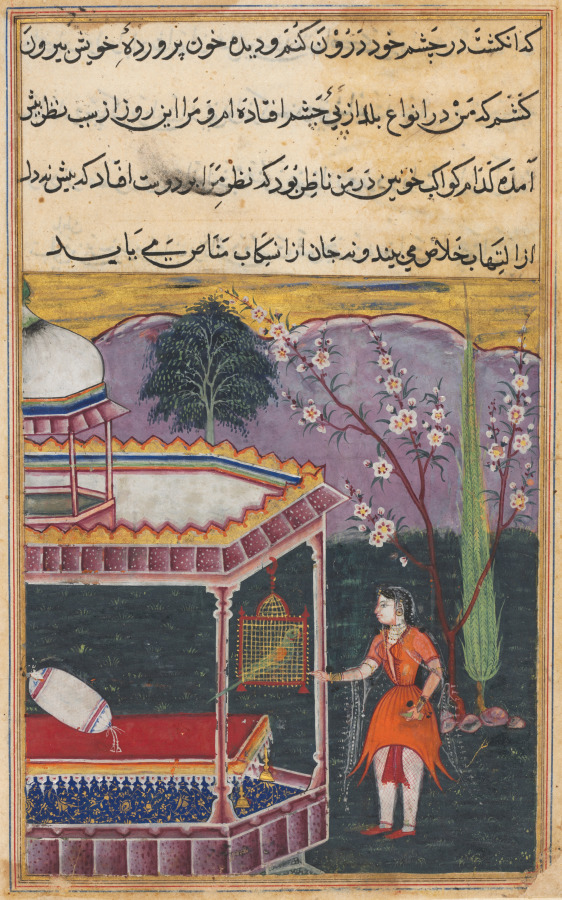 که انکشت در چشم خود درون کنم و دیده خون پروردهٔ خویش بیرون
کشم که من در انواع بلا از پی چشم افتاده ام و مرا این روز از سبب نظر پیش
آمده کدام کواکب خونین در من ناظر بود که نظر من بر دوست افتاد که بیش نه دل
از التهاب خلاص می بیند و نه جان از انسکاب مناص می یابد